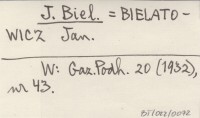 J. Biel. = BIELATO-
WICZ Jan.
W: Gaz. Podh. 20 (1932),
nr 43.